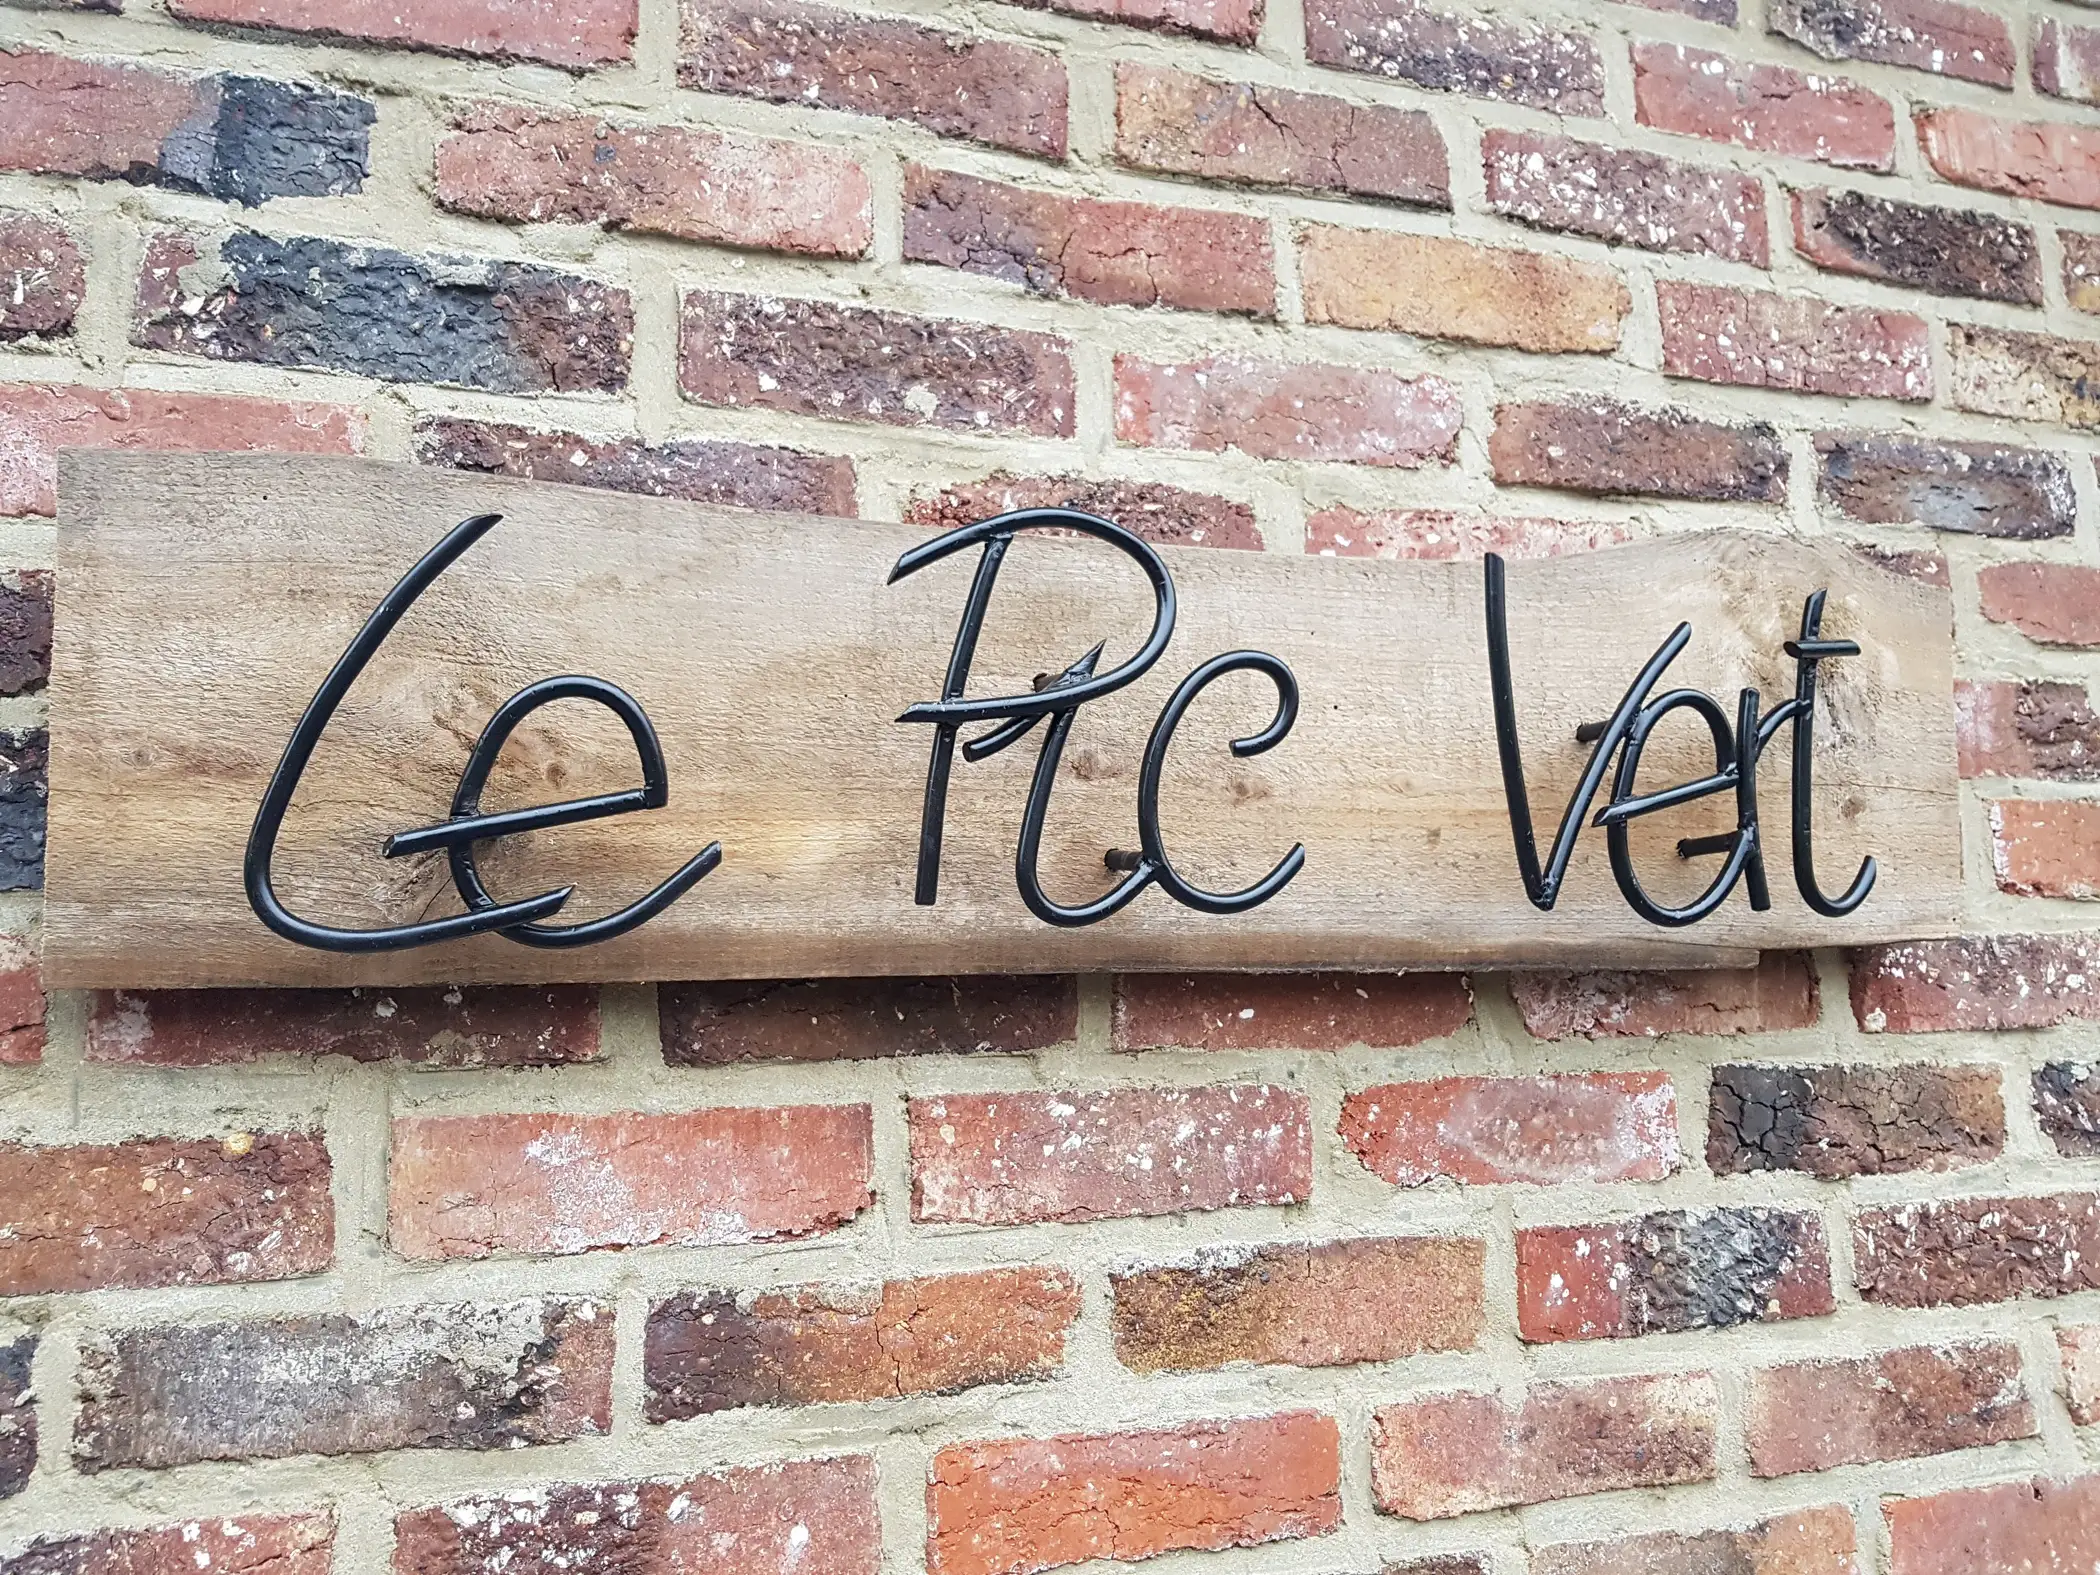 Le Pic Vert